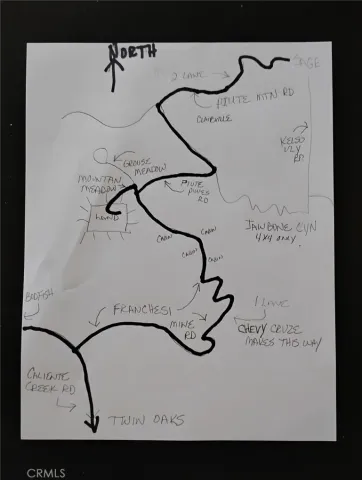 NORTH
SAGE
2 LANE
PIUTE MTN RD
KELSO
VLY
RD
GROUSE
MEADOW
MOUNTAIN
MEADOW
PIUTE
PINES
RD
LAND
JAWBONE CYN
4X4 ONLY
CABIN
CABIN
CABIN
CABIN
BODFISH
FRANCHESI
MINE
RD
1 LANE
CHEVY CRUZE
MAKES THIS WAY
CALIENTE
CREEK RD
TWIN OAKS
CRMLS